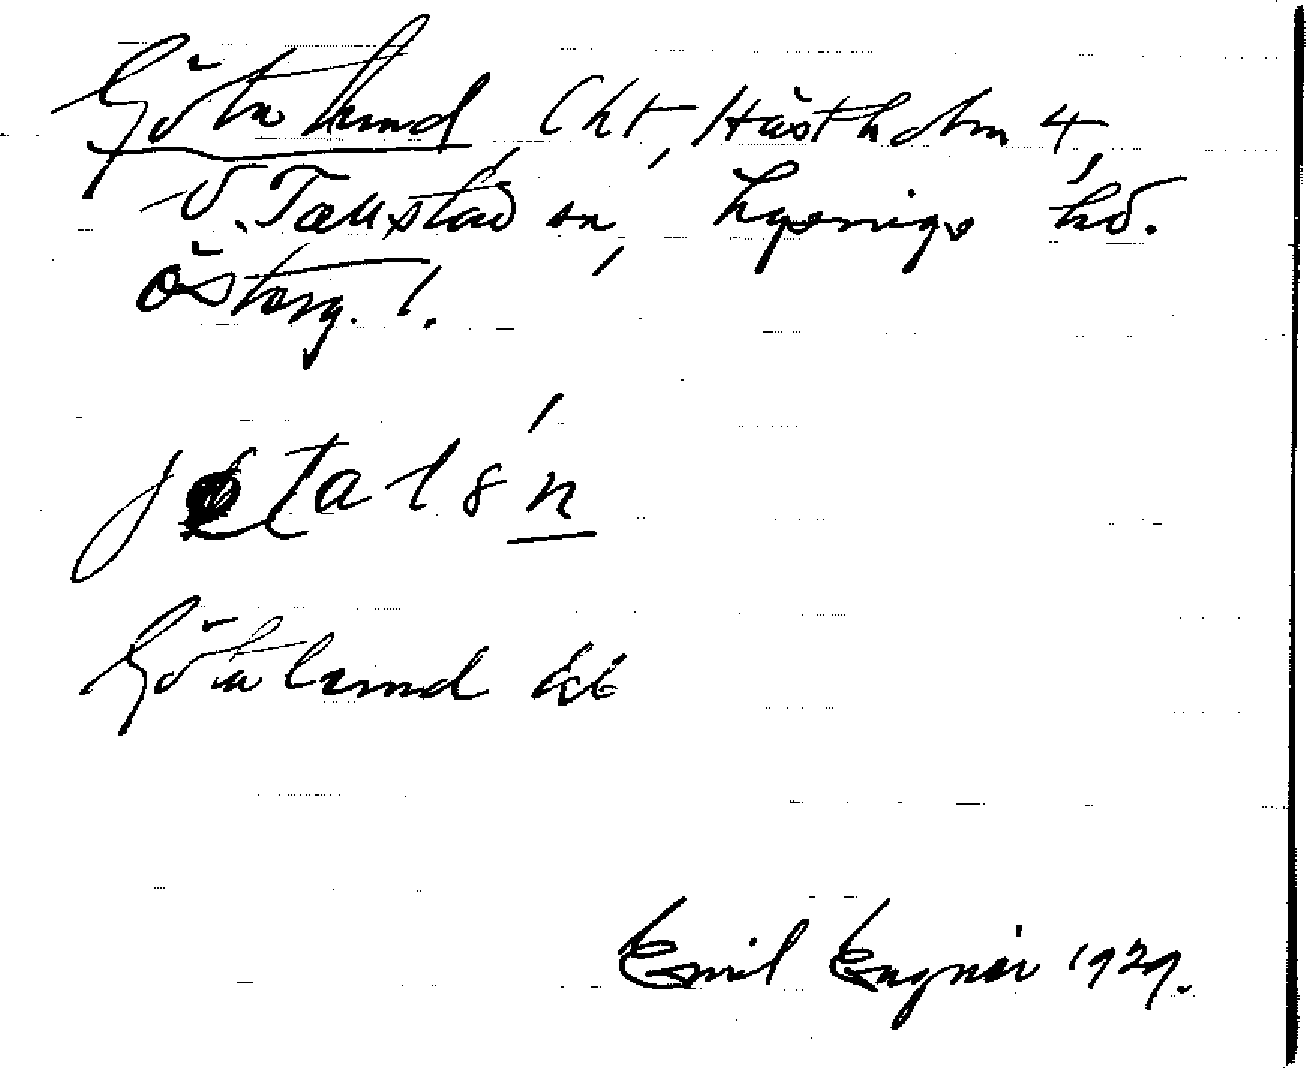 Götalund Lht, Hästholm 4,
V. Tollstad sn, Lysings hd.
Österg. l.
Götalund
Emil Engnér 1929.